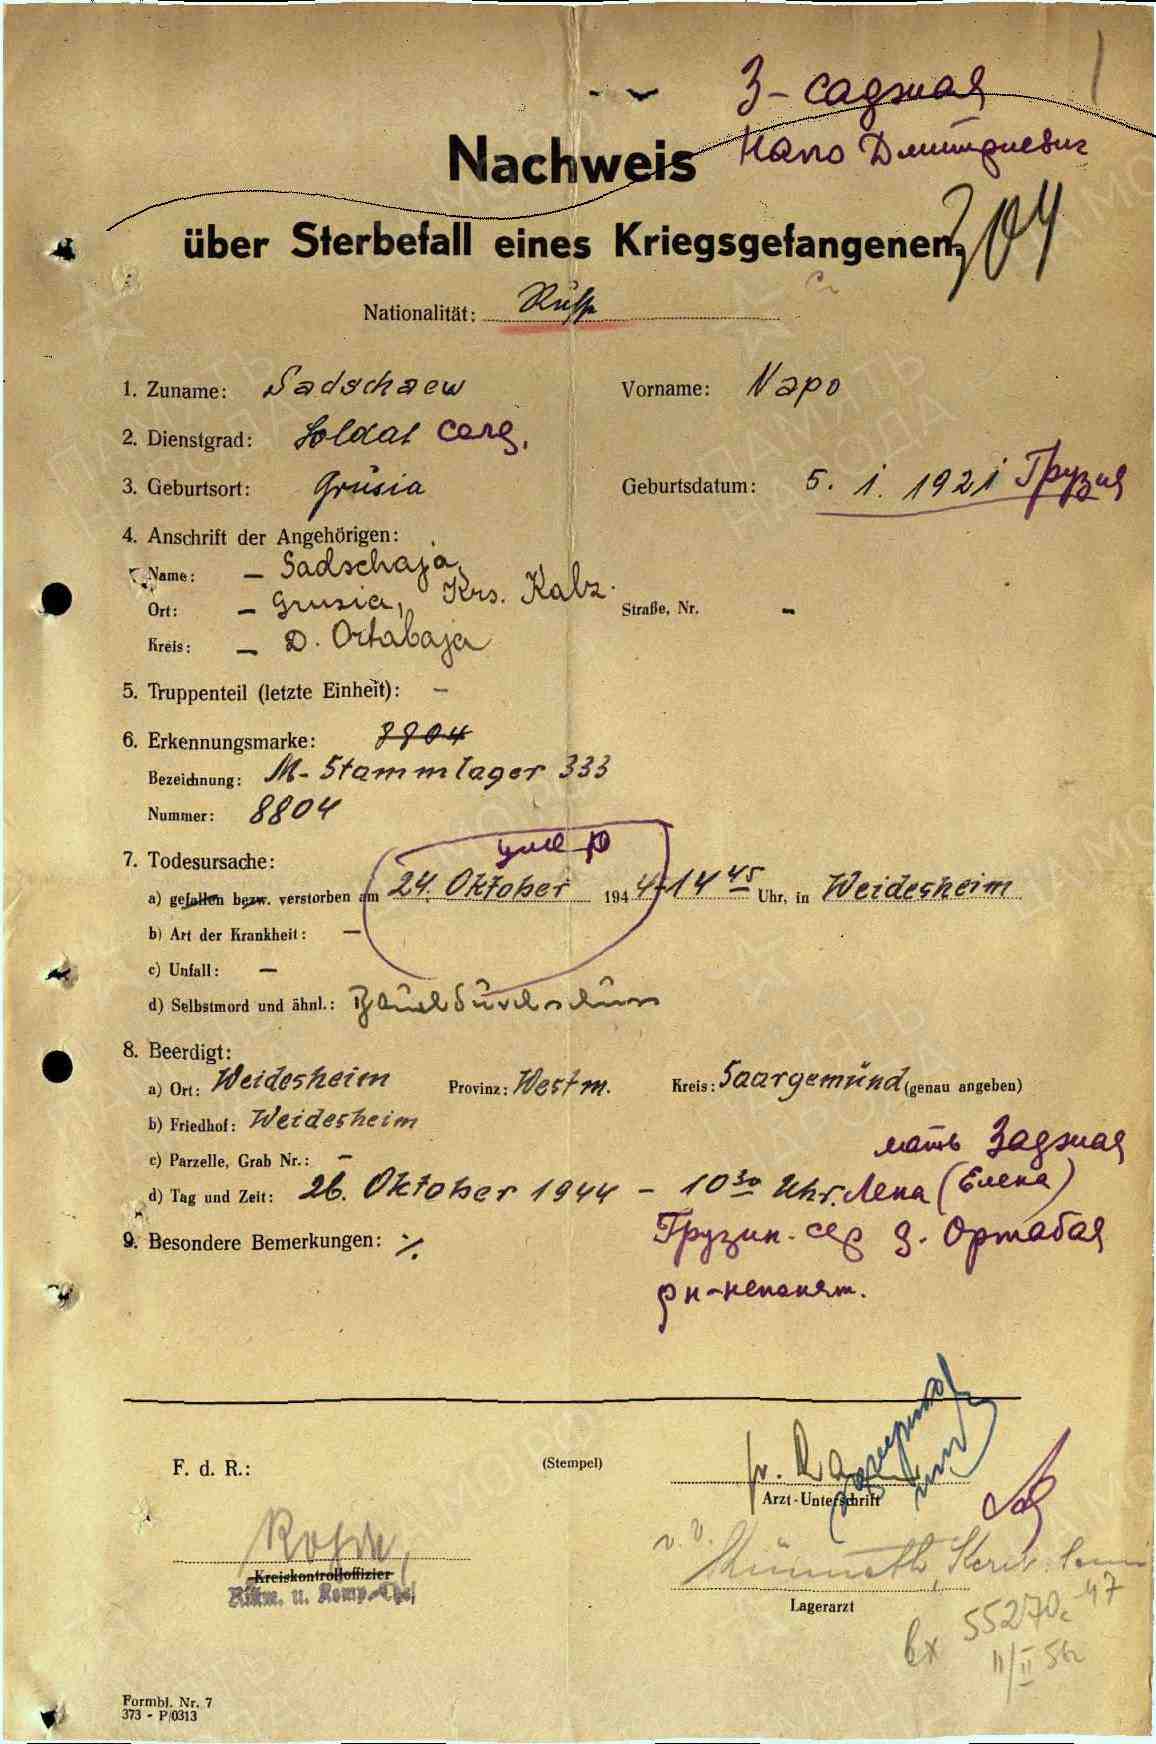 З-саджая
Напо Дмитриевич
Nachweis
über Sterbefall eines Kriegsgefangenen
304
Nationalität: Russe
1. Zuname: Sadschaew Vorname: Napo
2. Dienstgrad: Soldat солд.
3. Geburtsort: Grusia Geburtsdatum: 5. 1. 1921 Грузия
4. Anschrift der Angehörigen:
Name: – Sadschaja
Ort: – Grusia, Krs. Kalz. Straße, Nr. –
Kreis: – D. Ortabaja
5. Truppenteil (letzte Einheit): –
6. Erkennungsmarke: 8804
Bezeichnung: M-Stammlager 333
Nummer: 8804
7. Todesursache:
умер
a) gefallen bezw. verstorben am 24. Oktober 1944 - 14 45 Uhr, in Weidesheim
b) Art der Krankheit: –
c) Unfall: –
d) Selbstmord und ähnl.: Bauchdurchschuss
8. Beerdigt:
a) Ort: Weidesheim Provinz: Westm. Kreis: Saargemünd (genau angeben)
b) Friedhof: Weidesheim
c) Parzelle, Grab Nr.: –
мать Заджая
d) Tag und Zeit: 26. Oktober 1944 – 10 30 Uhr. Лена (Елена)
9. Besondere Bemerkungen: ·/.
Грузин. сср д. Ортабая
рн-непонят.
F. d. R.: (Stempel)
Arzt-Unterschrift
Kreiskontrolloffizier
Rittm. u. Komp.-Chef
Lagerarzt
Вх 55270с 47
11/II 5
Formbl. Nr. 7
373 - P/0313